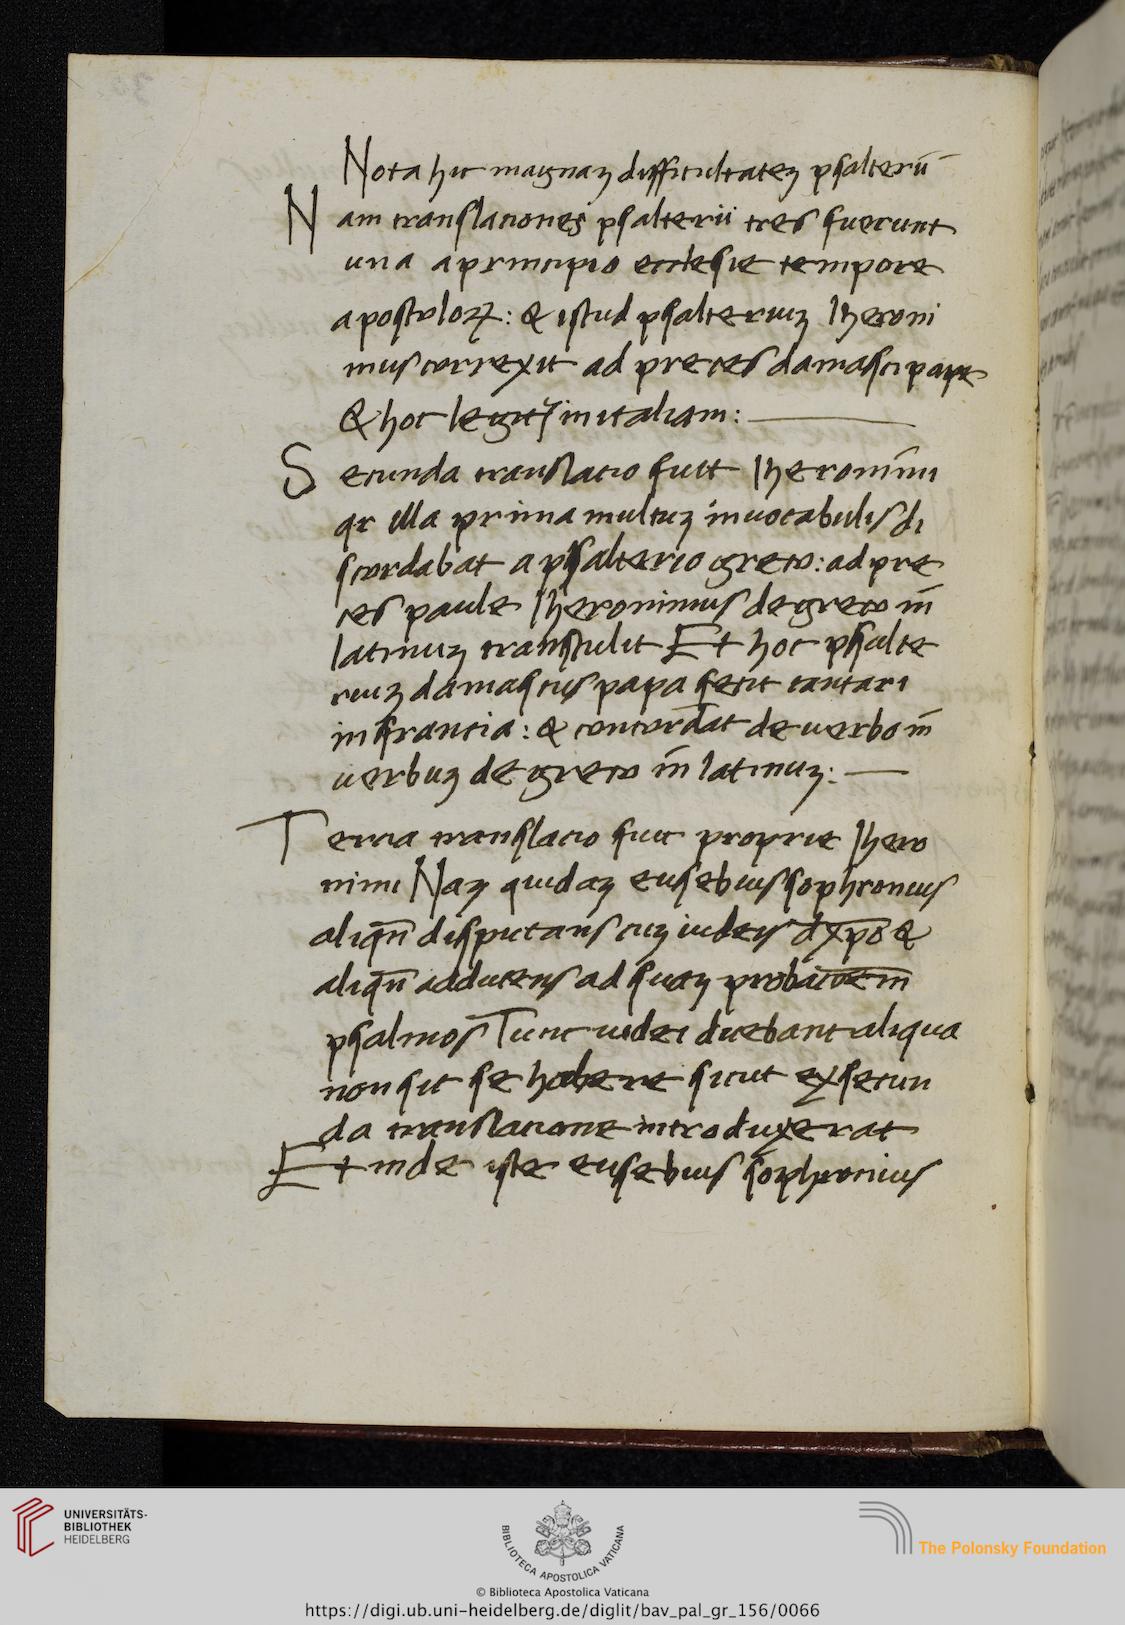 Nota hic magnaʒ difficultateʒ psalterii
Nam translaciones psalterii tres fuerunt
una a principio ecclesie tempore
apostoloꝝ: & istud psalteriuʒ Iheroni
mus correxit ad preces damasci pape
& hoc legitᷣ in italiam:
Secunda translacio fuit Iheronimi
qr illa prima multuʒ in uocabulis di
scordabat a psalterio greco: ad pre
ces paule Iheronimus de greco in̄
latinuʒ transtulit Et hoc psalte
riuʒ damascus papa fecit cantari
in francia: & concordat de uerbo in̄
uerbuʒ de greco in̄ latinuʒ:
Tercia translacio fuit proprie Ihero
nimi Naʒ quidaʒ eusebius sophronius
aliqn̄ disputans cuʒ iudeis d xp̄o &
aliqn̄ adducens ad suaʒ probac̄oem
psalmos Tunc iudei dicebant aliqua
non sit se habere sicut ex secun
da translacione introduxerat
Et inde iste eusebius sophronius
UNIVERSITÄTS-
BIBLIOTHEK
HEIDELBERG
BIBLIOTECA APOSTOLICA VATICANA
The Polonsky Foundation
© Biblioteca Apostolica Vaticana
https://digi.ub.uni-heidelberg.de/diglit/bav_pal_gr_156/0066